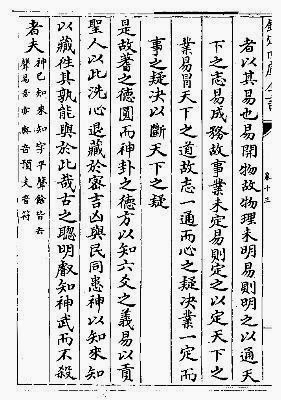 卷十三
者以其易也易開物故物理未明易則明之以通天
下之志易成務故事業未定易則定之以定天下之
業易冒天下之道故志一通而心之疑決業一定而
事之疑決以斷天下之疑
是故蓍之德圓而神卦之德方以知六爻之義易以貢
聖人以此洗心退藏於密吉凶與民同患神以知來知
以藏往其孰能與於此哉古之聰明叡知神武而不殺
者夫
神以知來知字平聲餘皆去
聲易音亦與音預夫音符